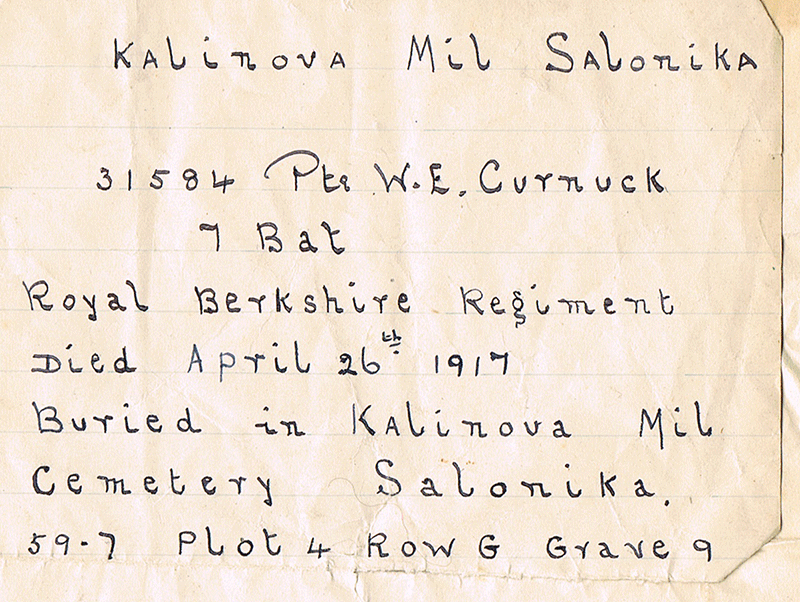 Kalinova Mil Salonika
31584 Pte W.E. Curnuck
7 Bat
Royal Berkshire Regiment
Died April 26th 1917
Buried in Kalinova Mil
Cemetery Salonika.
59-7 Plot 4 Row G Grave 9